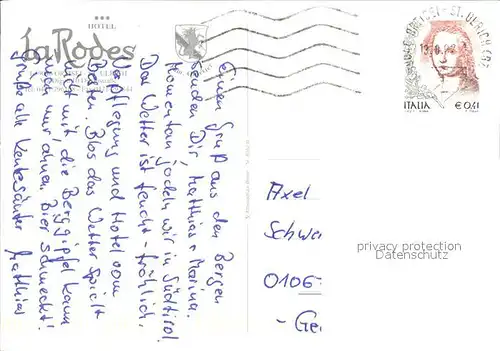 ★★★
HOTEL
La Rodes
Einen Gruß aus den Bergen
senden Dir Matthias + Marina.
Momentan jodeln wir in Südtirol.
Das Wetter ist feucht-fröhlich.
Verpflegung und Hotel vom
Besten. Blos das Wetter spielt
nicht mit, die Berggipfel kann
man nur ahnen. Bier schmeckt!
Grüße alle
Matthias
ITALIA € 0,41
Axel
Schwa
0106
- Ge
privacy protection
Datenschutz